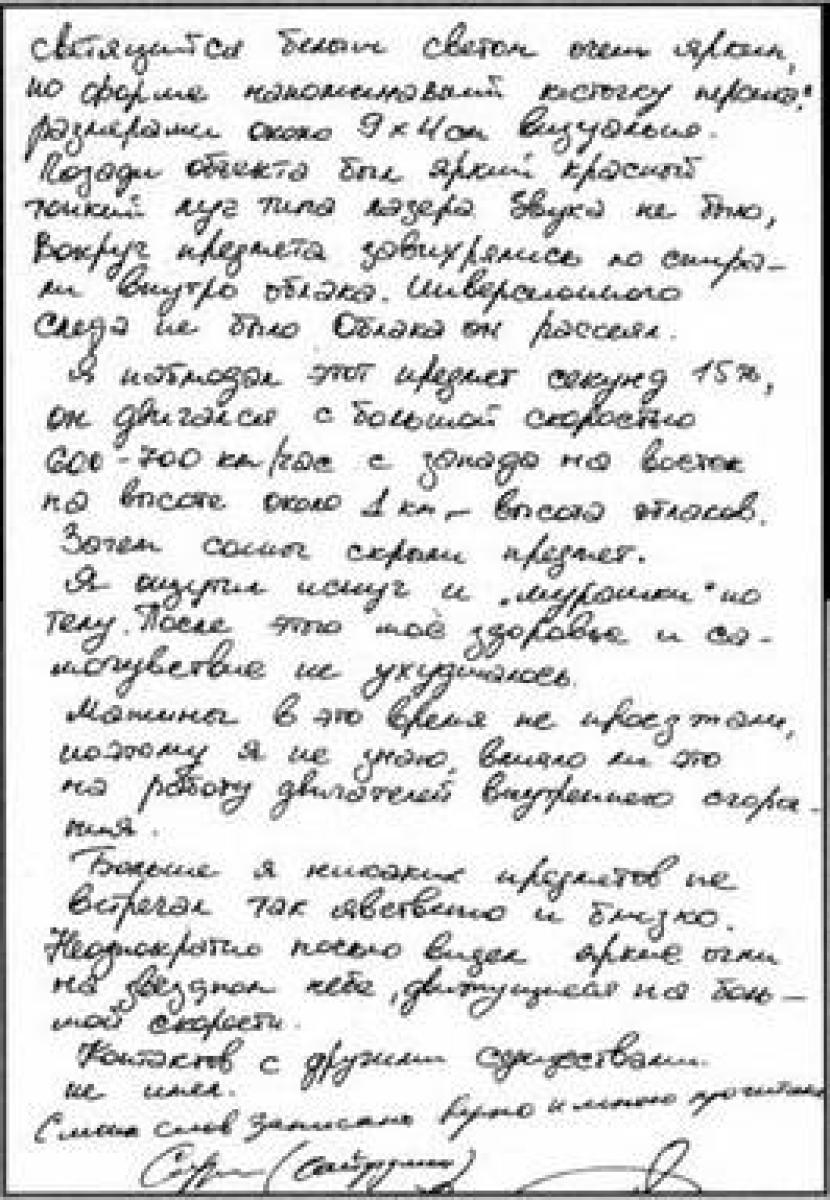 светящийся белым светом очень ярким,
по форме напоминавший косточку персика,
размерами около 9 х 4 см визуально.
Позади объекта был яркий красный
тонкий луч типа лазера Звука не было,
Вокруг предмета завихрялись по спира-
ли внутро облака. Инверсионного
следа не было Облака он рассеял.
Я наблюдал этот предмет секунд 15%,
он двигался с большой скоростью
600-700 км/час с запада на восток
на высоте около 1 км, - высота облаков.
Затем сопки скрыли предмет.
Я ощутил испуг и "мурашки" по
телу. После этого моё здоровье и са-
мочувствие не ухудшалось.
Машины в это время не проезжали,
поэтому я не знаю, влияло ли это
на работу двигателей внутреннего сгора-
ния.
Больше я никаких предметов не
встречал так явственно и близко.
Неоднократно ночью видел яркие огни
на звездном небе, движущиеся на боль-
шой скорости.
Контактов с другими существами
не имел.
С моих слов записано верно и мною прочитано